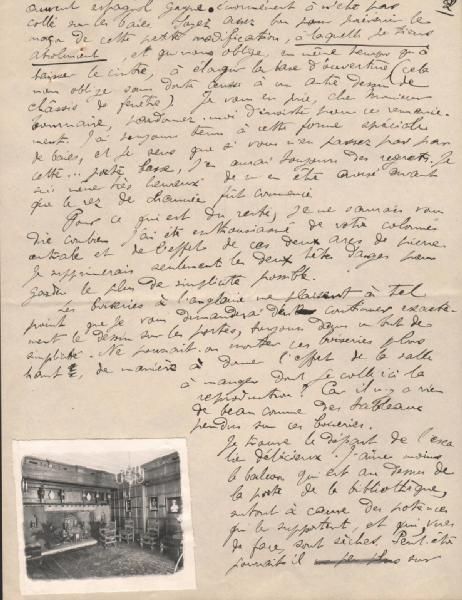 auvent espagnol
collé sur les baies. Soyez assez bon pour prévenir le
maçon de cette petite modification, à laquelle je tiens
absolument, et qui nous oblige, en même temps qu'à
baisser le cintre, à élargir la base d'ouverture (cela
nous oblige sans doute aussi à un autre dessin de
châssis de fenêtre). Je vous en prie, cher Monsieur
pardonnez-moi d'insister pour ce
J'ai toujours tenu à cette forme spéciale
de baies, et je sens que si vous n'en passez pas par
cette basse, j'en aurai toujours des regrets. Je
suis même très heureux de m'en être avisé avant
que le rez de chaussée fût commencé
Pour ce qui est du reste, je ne saurais vous
dire combien j'ai été enthousiasmé de votre colonne
centrale et de l'effet de ces deux arcs de pierre
Je supprimerais seulement les deux têtes d'anges pour
garder le plus de simplicité possible.
Les boiseries à l'anglaise me plaisent à tel
point que je vous demanderai de continuer exacte-
ment le dessin sur les portes, toujours dans un but de
simplicité. Ne pourrait-on monter ces boiseries plus
haut, de manière à donner l'effet de la salle
à manger dont je colle ici la
reproduction? Car il n'y a rien
de beau comme des tableaux
pendus sur ces boiseries.
Je trouve le départ de l'esca-
lier délicieux. J'aime moins
le balcon qui est au dessus de
la porte de la bibliothèque,
surtout à cause des potences
qui le supportent, et qui, vues
de face, sont sèches. Peut-être
pourrait-il sur